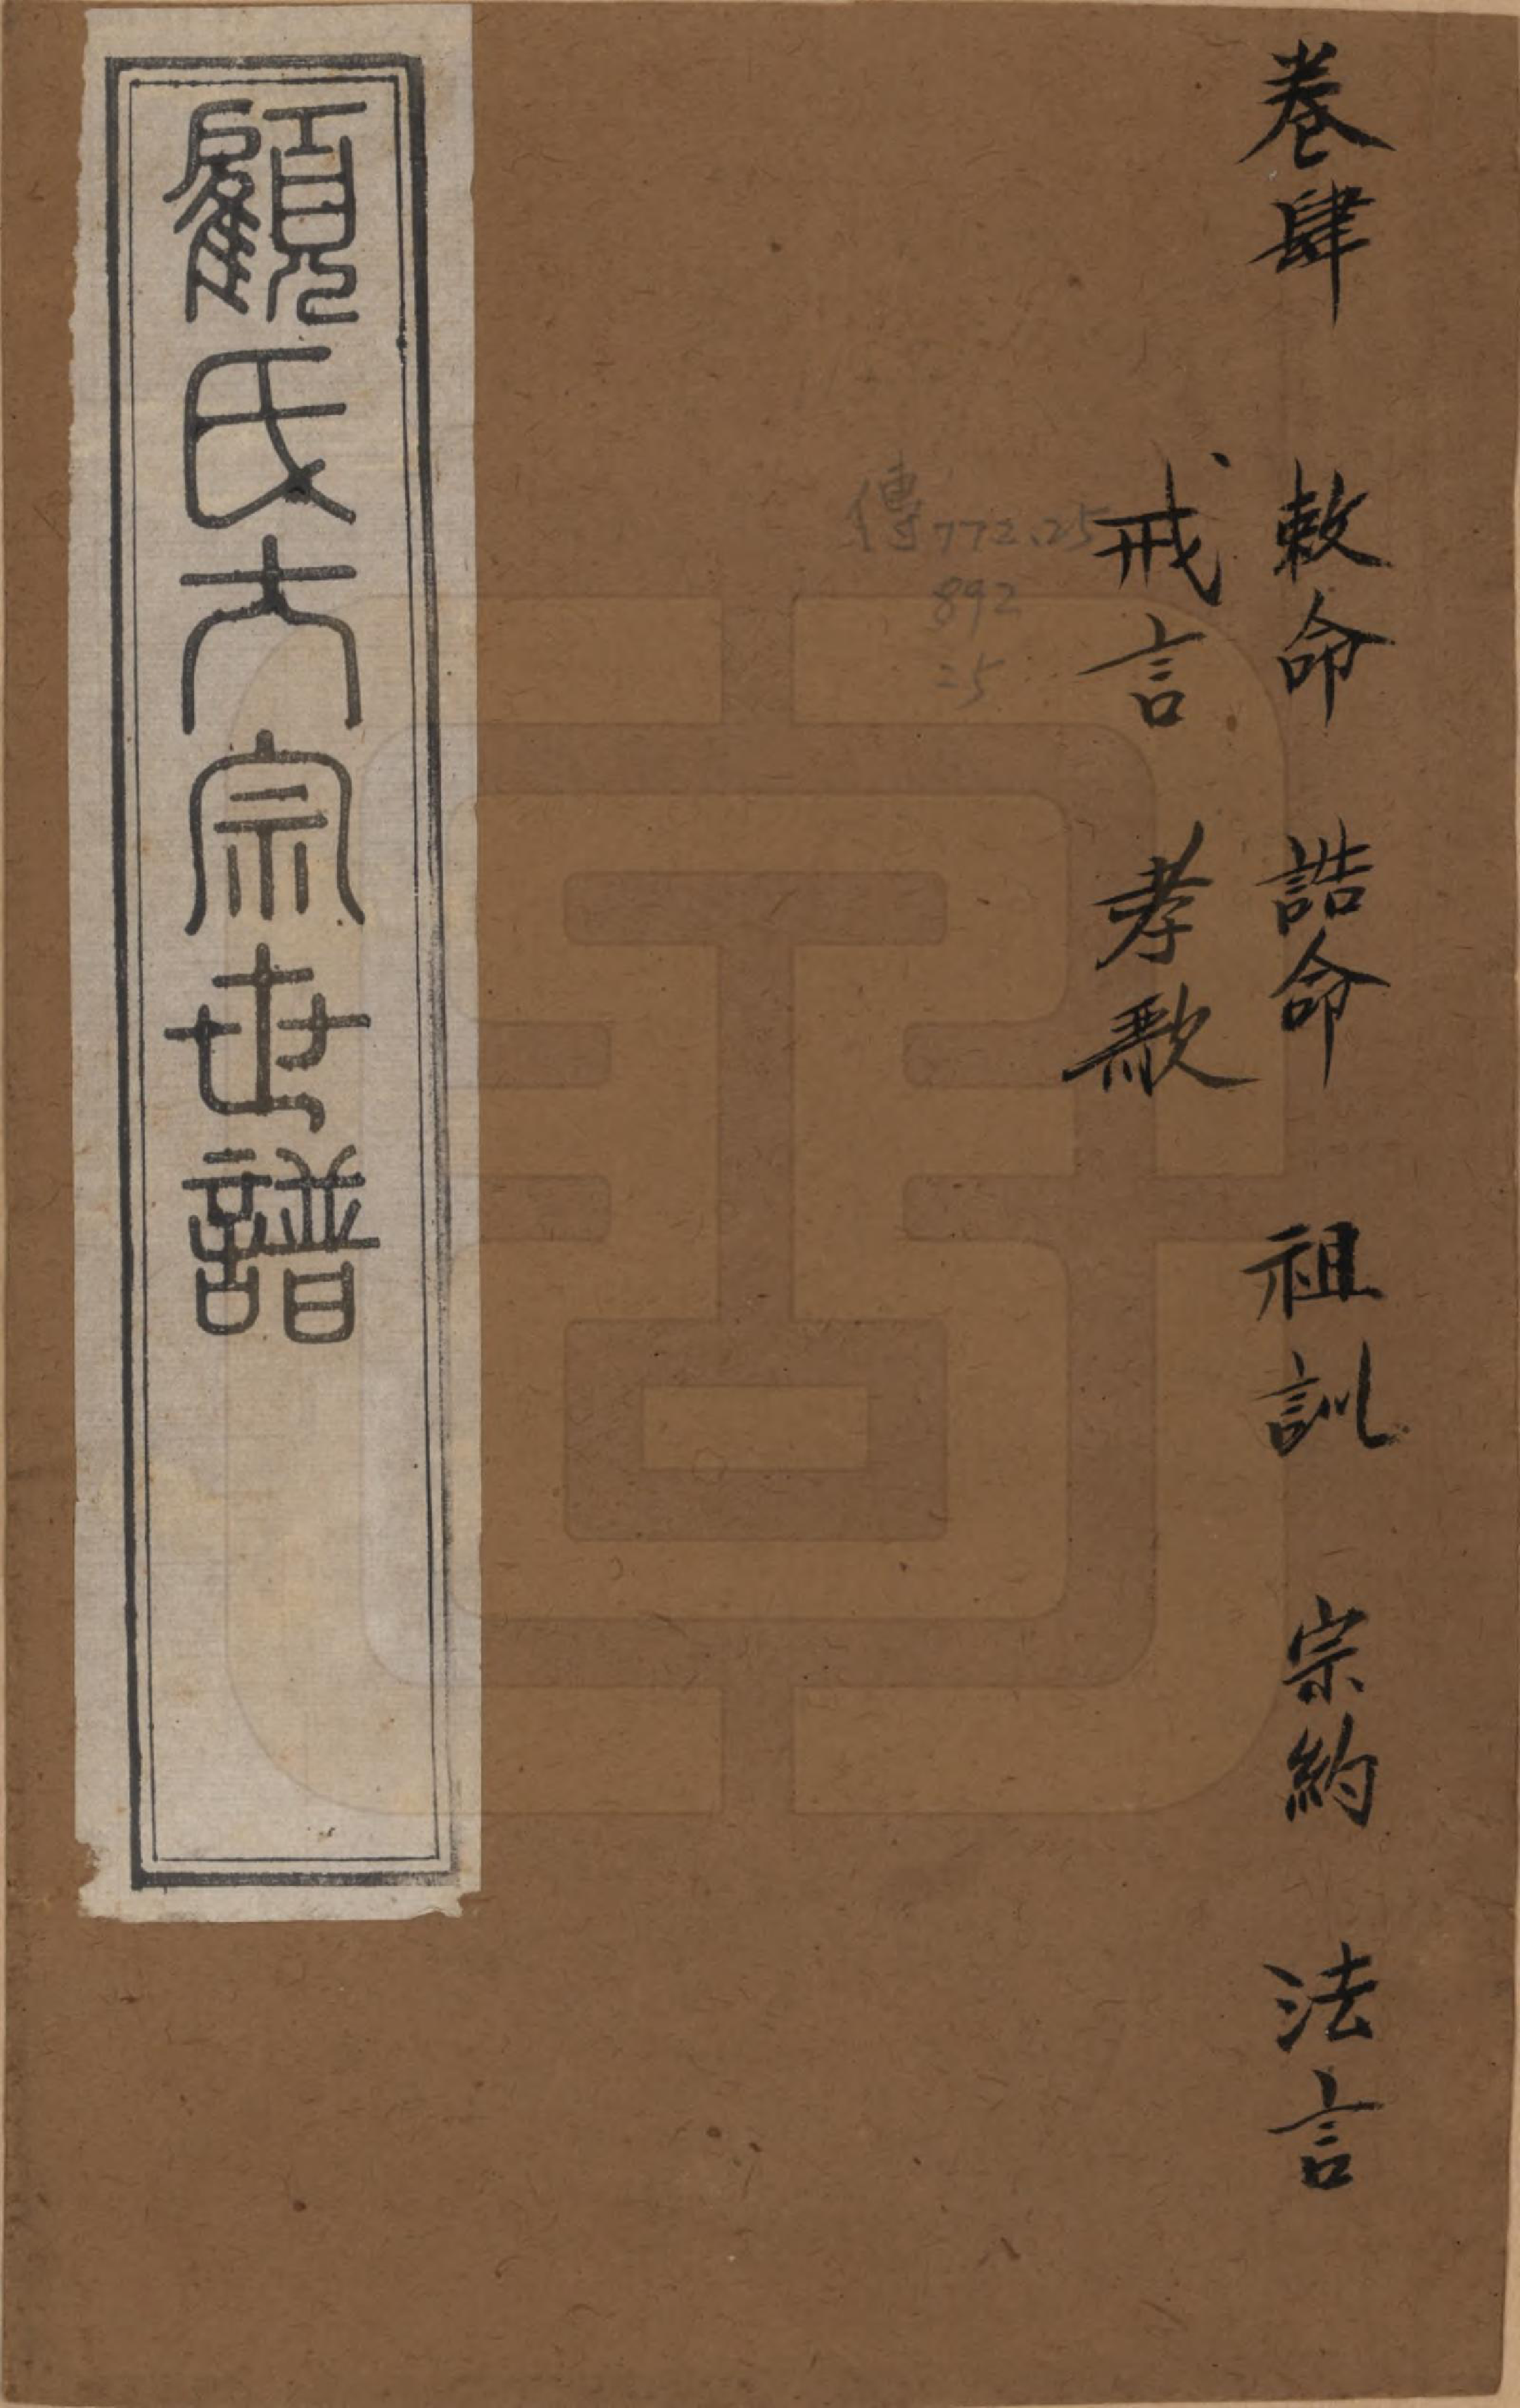 卷肆 敕命 誥命 祖訓 宗約 法言
戒言 孝歌
傳772.25
892
=5
顧氏大宗世譜